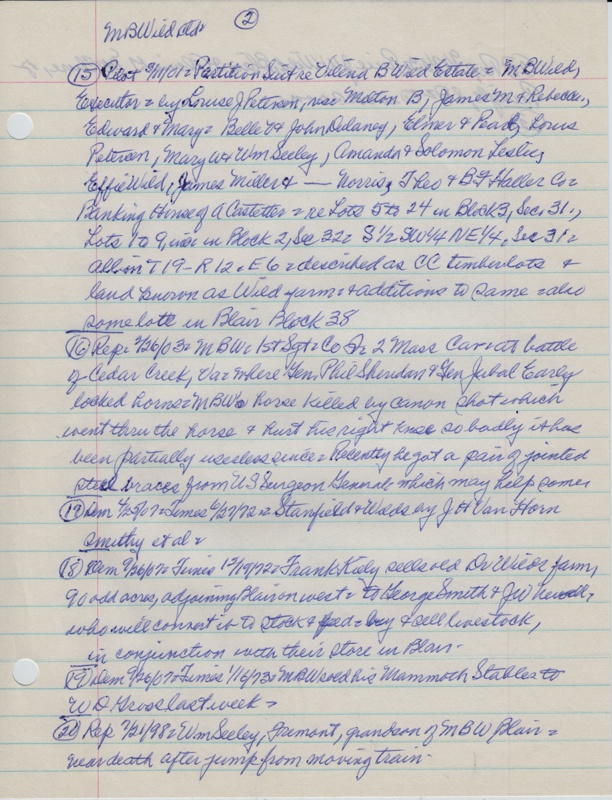 MBWild ctd. (2)
(15) Pilot 9/11/01 = Partition Suit re Orlend B Wild Estate = MBWild,
Executor = by Louise J Petersen, nee Maton B, James M & Rebecca,
Edward & Mary = Belle & John Delaney, Elmer & Pearl, Louis
Petersen, Mary W & Wm Seeley, Amanda & Solomon Leslie,
Effie Wild, James Miller & — Norris, Theo & B F Haller Co =
Banking House of A Castetter = re Lots 5 to 24 in Block 3, Sec. 31.,
Lots 1 to 9, in Block 2, Sec 32 = S1/2 SW1/4 NE1/4, Sec 31 =
all in T19-R12. E6 = described as CC timber lots &
land known as Wild farm = & additions to same = also
some lots in Blair Block 38
(16) Rep = 2/26/03 = MBW = 1st Sgt = Co 2 Mass Cav = at battle
of Cedar Creek, Va = where Gen. Phil Sheridan & Gen Jubal Early
locked horns = MBWs horse killed by canon shot which
went thru the horse & hurt his right knee so badly it has
been partially useless since = Recently he got a pair of jointed
steel braces from US Surgeon General which may help some =
(17) Dem 4/25/07 = Times 6/27/72 = Stanfield & Wads by J H Van Horn
Smithy et al =
(18) Dem 9/26/07 = Times 12/19/72 = Frank Kiely sells old Dr Wild's farm,
90 odd acres, adjoining Blair on west = to George Smith & JW
who will convert it to stock & feed = buy & sell livestock,
in conjunction with their store in Blair.
(19) Dem 9/26/07 = Times 1/16/73 = MBW sold his Mammoth Stables to
W D Gross last week =
(20) Rep 7/21/98 = Wm Seeley, Fremont, grandson of MBW Blair =
near death after jump from moving train.